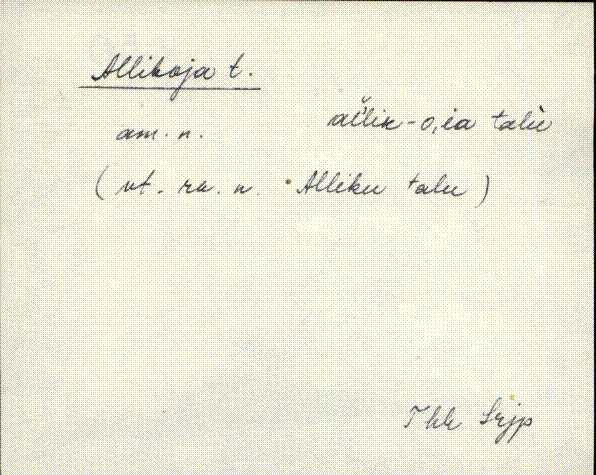 Allikoja t.
am. n. aĺlik-o,ia talù
( vt. ra. n. Alliku talu )
Thk Srjp